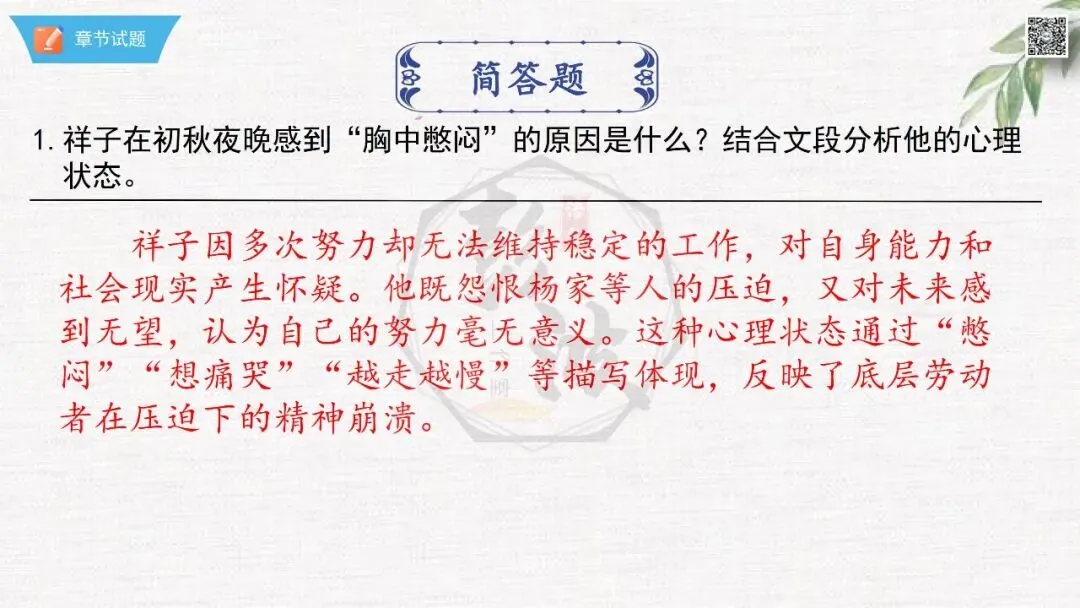 章节试题
简答题
1.祥子在初秋夜晚感到“胸中憋闷”的原因是什么？结合文段分析他的心理
状态。
祥子因多次努力却无法维持稳定的工作，对自身能力和
社会现实产生怀疑。他既怨恨杨家等人的压迫，又对未来感
到无望，认为自己的努力毫无意义。这种心理状态通过“憋
闷”“想痛哭”“越走越慢”等描写体现，反映了底层劳动
者在压迫下的精神崩溃。